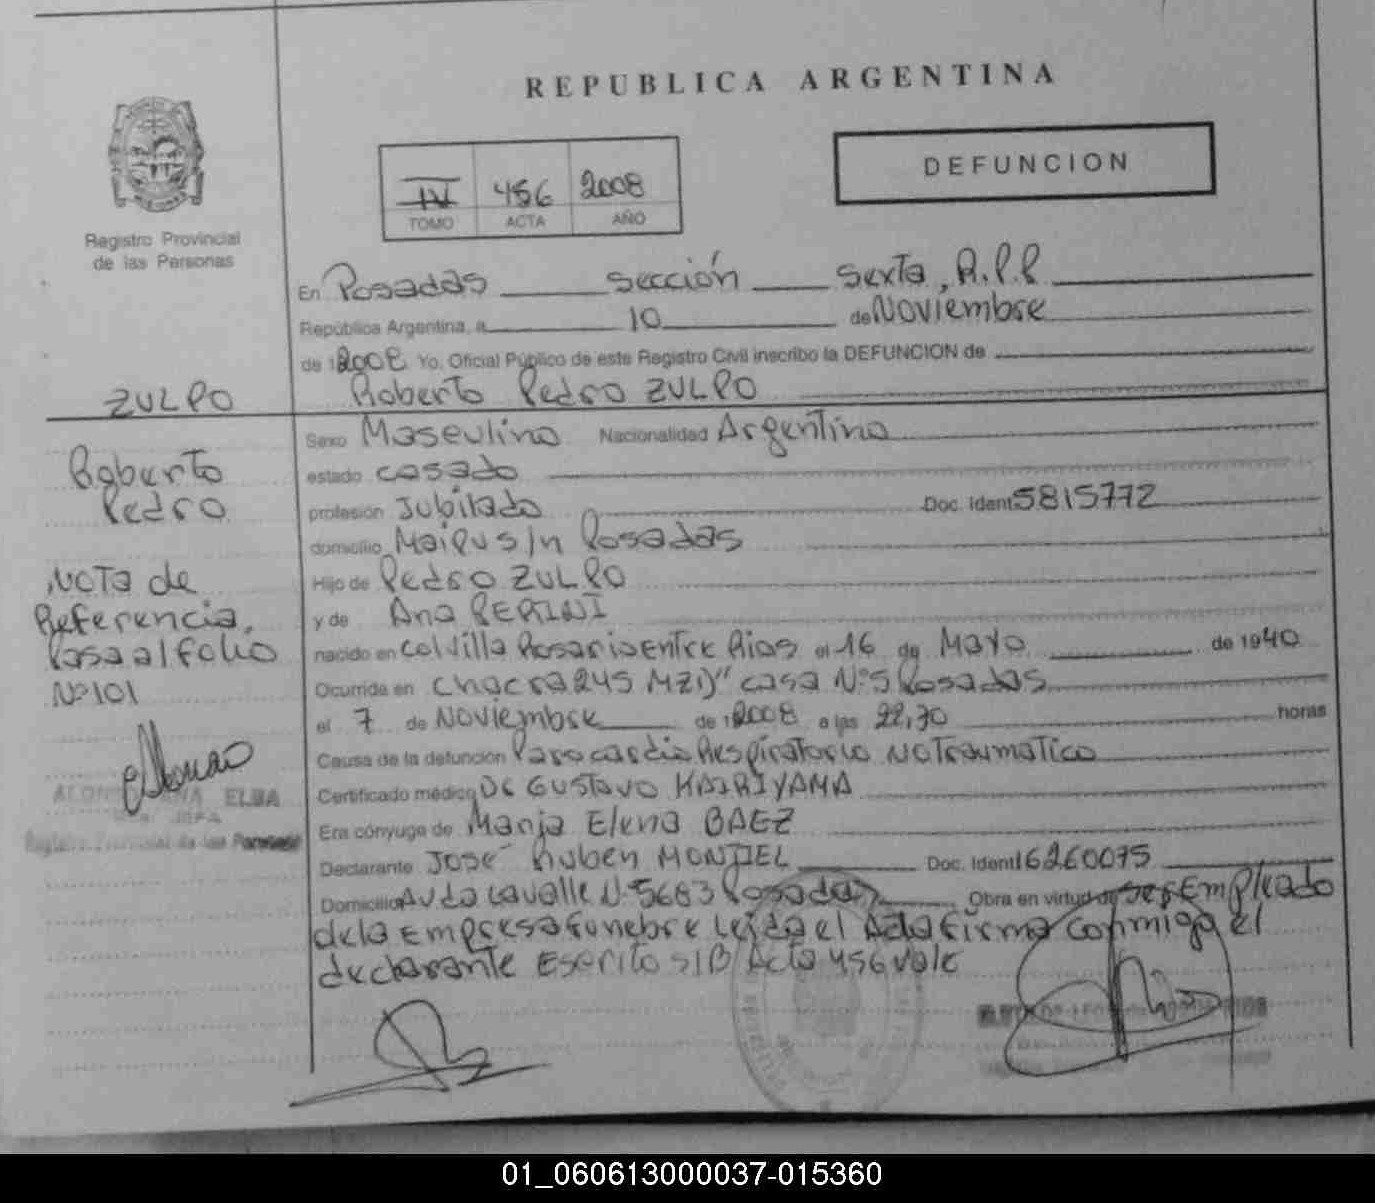 REPUBLICA ARGENTINA
DEFUNCION
IV 456 2008
TOMO ACTA AÑO
Registro Provincial
de las Personas
En Posadas sección sexta, R.P.P
República Argentina, a 10 de Noviembre
de 12008 Yo, Oficial Público de este Registro Civil inscribo la DEFUNCION de
Roberto Pedro ZULPO
Sexo Masculino Nacionalidad Argentina
estado casado
profesión Jubilado Doc. Ident 5815772
domicilio Maipu s/n Posadas
Hijo de Pedro ZULPO
y de Ana PERINI
nacido en Col Villa Rosario Entre Rios el 16 de Mayo de 1940
Ocurrida en chacra 245 MZ"D" casa Nº5 Posadas
el 7 de Noviembre de 12008 a las 22,30 horas
Causa de la defunción Paro cardio Respiratorio No Traumatico
Certificado médico Dr GUSTAVO KAIRIYAMA
Era cónyuge de Maria Elena BAEZ
Declarante José Ruben MONTIEL Doc. Ident 16260075
Domicilio Avda Lavalle Nº5683 Posadas Obra en virtud de ser Empleado
de la Empresa funebre Leida el Acta firma conmigo el
declarante Escrito s/B Acta 456 vale
ZULPO
Roberto
Pedro
Nota de
Referencia,
Pasa al folio
Nº101
ELBA
JEFA
Registro Provincial de las Personas
01_060613000037-015360